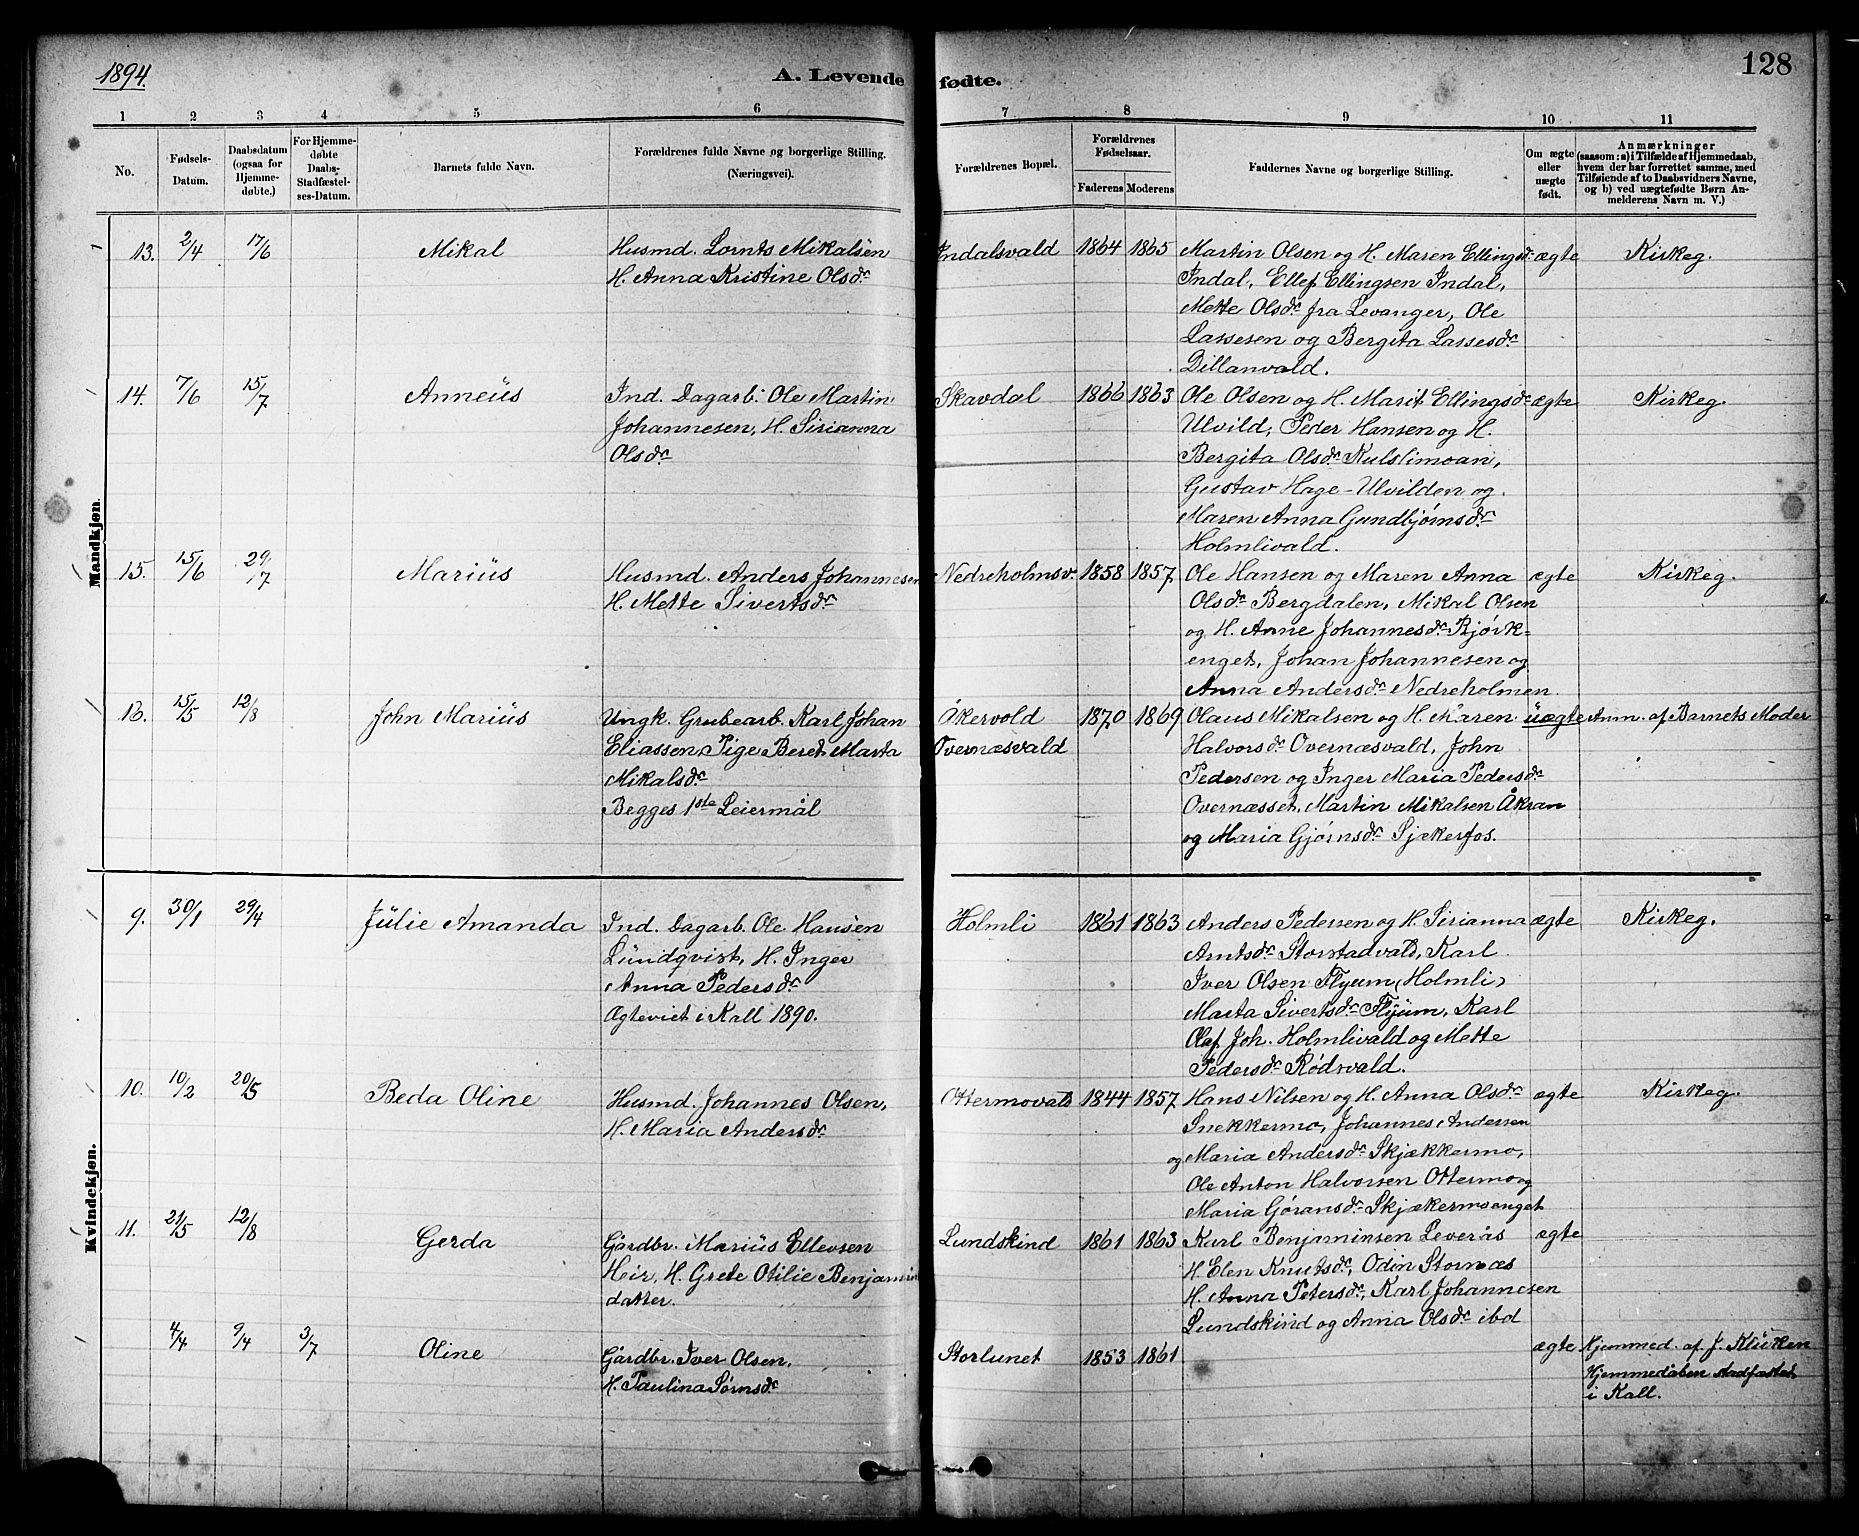 1894.
A. Levende fødte.
128
1 2 3 4 5 6 7 8 9 10 11
No.
Fødsels-
Datum.
Daabsdatum
(ogsaa for
Hjemme-
døbte.)
For Hjemme-
døbte
Daabs-
Stadfæstel-
ses-Datum.
Barnets fulde Navn.
Forældrenes fulde Navne og borgerlige Stilling.
(Næringsvei.)
Forældrenes Bopæl.
Forældrenes
Fødselsaar.
Faderens Moderens
Faddernes Navne og borgerlige Stilling.
Om ægte
eller
uægte
født.
Anmærkninger
(saasom: a) i Tilfælde af Hjemmedaab,
hvem der har forrettet samme, med
Tilføiende af to Daabsvidners Navne,
og b) ved uægtefødte Børn An-
melderens Navn m. V.)
Mandkjøn.
13. 2/4 17/6 Mikal
Husmd. Lornts Mikalsen
H. Anna Kristine Olsdr.
Indalsvald 1864 1865
Martin Olsen og H. Maren Ellingsdr.
Indal, Ellef Ellingsen Indal,
Mette Olsdr. fra Levanger, Ole
Lassesen og Bergita Lassesdr.
Dillanvald.
ægte Kirkeg.
14. 7/6 15/7 Anneus
Ind. Dagarb. Ole Martin
Johannesen, H. Sirianna
Olsdr.
Skavdal 1866 1863
Ole Olsen og H. Marit Ellingsdr.
Ulvild, Peder Hansen og H.
Bergita Olsdr. Kulslimoan,
Gustav Hage-Ulvilden og
Maren Anna Gundbjørnsdr.
Holmlivald.
ægte Kirkeg.
15. 15/6 29/7 Marius
Husmd. Anders Johannesen
H. Mette Sivertsdr.
Nedreholmsv. 1858 1857
Ole Hansen og Maren Anna
Olsdr. Bergdalen, Mikal Olsen
og H. Anne Johannesdr. Bjørk-
enget, Johan Johannesen og
Anna Andersdr. Nedreholmen.
ægte Kirkeg.
16. 15/5 12/8 John Marius
Ungk. Grubearb. Karl Johan
Eliassen, Pige Beret Marta
Mikalsdr.
Begges 1ste Leiermål
Åkervold
Overnæsvald
1870 1869
Olaus Mikalsen og H. Maren
Halvorsdr. Overnæsvald, John
Pedersen og Inger Maria Pedersdr.
Overnæsset, Martin Mikalsen Åkran
og Maria Gjørnsdr. Sjækerfos.
uægte Anm. af Barnets Moder
Kvindekjøn.
9. 30/1 29/4 Julie Amanda
Ind. Dagarb. Ole Hansen
Lundqvist, H. Inger
Anna Pedersdr.
Ægteviet i Kall 1890.
Holmli 1861 1863
Anders Pedersen og H. Sirianna
Arntsdr. Storstadvald, Karl
Iver Olsen Flyum (Holmli)
Marta Sivertsdr. Flyum, Karl
Olaf Joh. Holmlivald og Mette
Pedersdr. Rødsvald.
ægte Kirkeg.
10. 10/2 20/5 Beda Oline
Husmd. Johannes Olsen,
H. Maria Andersdr.
Ottermovald 1844 1857
Hans Nilsen og H. Anna Olsdr.
Snekkermo, Johannes Andersen
og Maria Andersdr. Skjækkermo,
Ole Anton Halvorsen Ottermo og
Maria Gøransdr. Skjækermoenget
ægte Kirkeg.
11. 21/5 12/8 Gerda
Gårdbr. Marius Ellevsen
Heir, H. Grete Otilie Benjamin
datter.
Lundskind 1861 1863
Karl Benjaminsen Leverås
H. Elen Knutsdr., Odin Stornæs
H. Anna Petersdr., Karl Johannesen
Lundskind og Anna Olsdr. ibd
ægte
4/4 9/4 3/7 Oline
Gårdbr. Iver Olsen,
H. Paulina Sørnsdr.
Storlunet 1853 1861
ægte
Hjemmed. af J. Kluken
Hjemmedåben stadfæstet
i Kall.